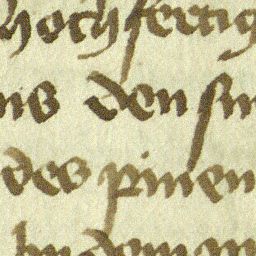 hochfertig
ns den sin
des pinen